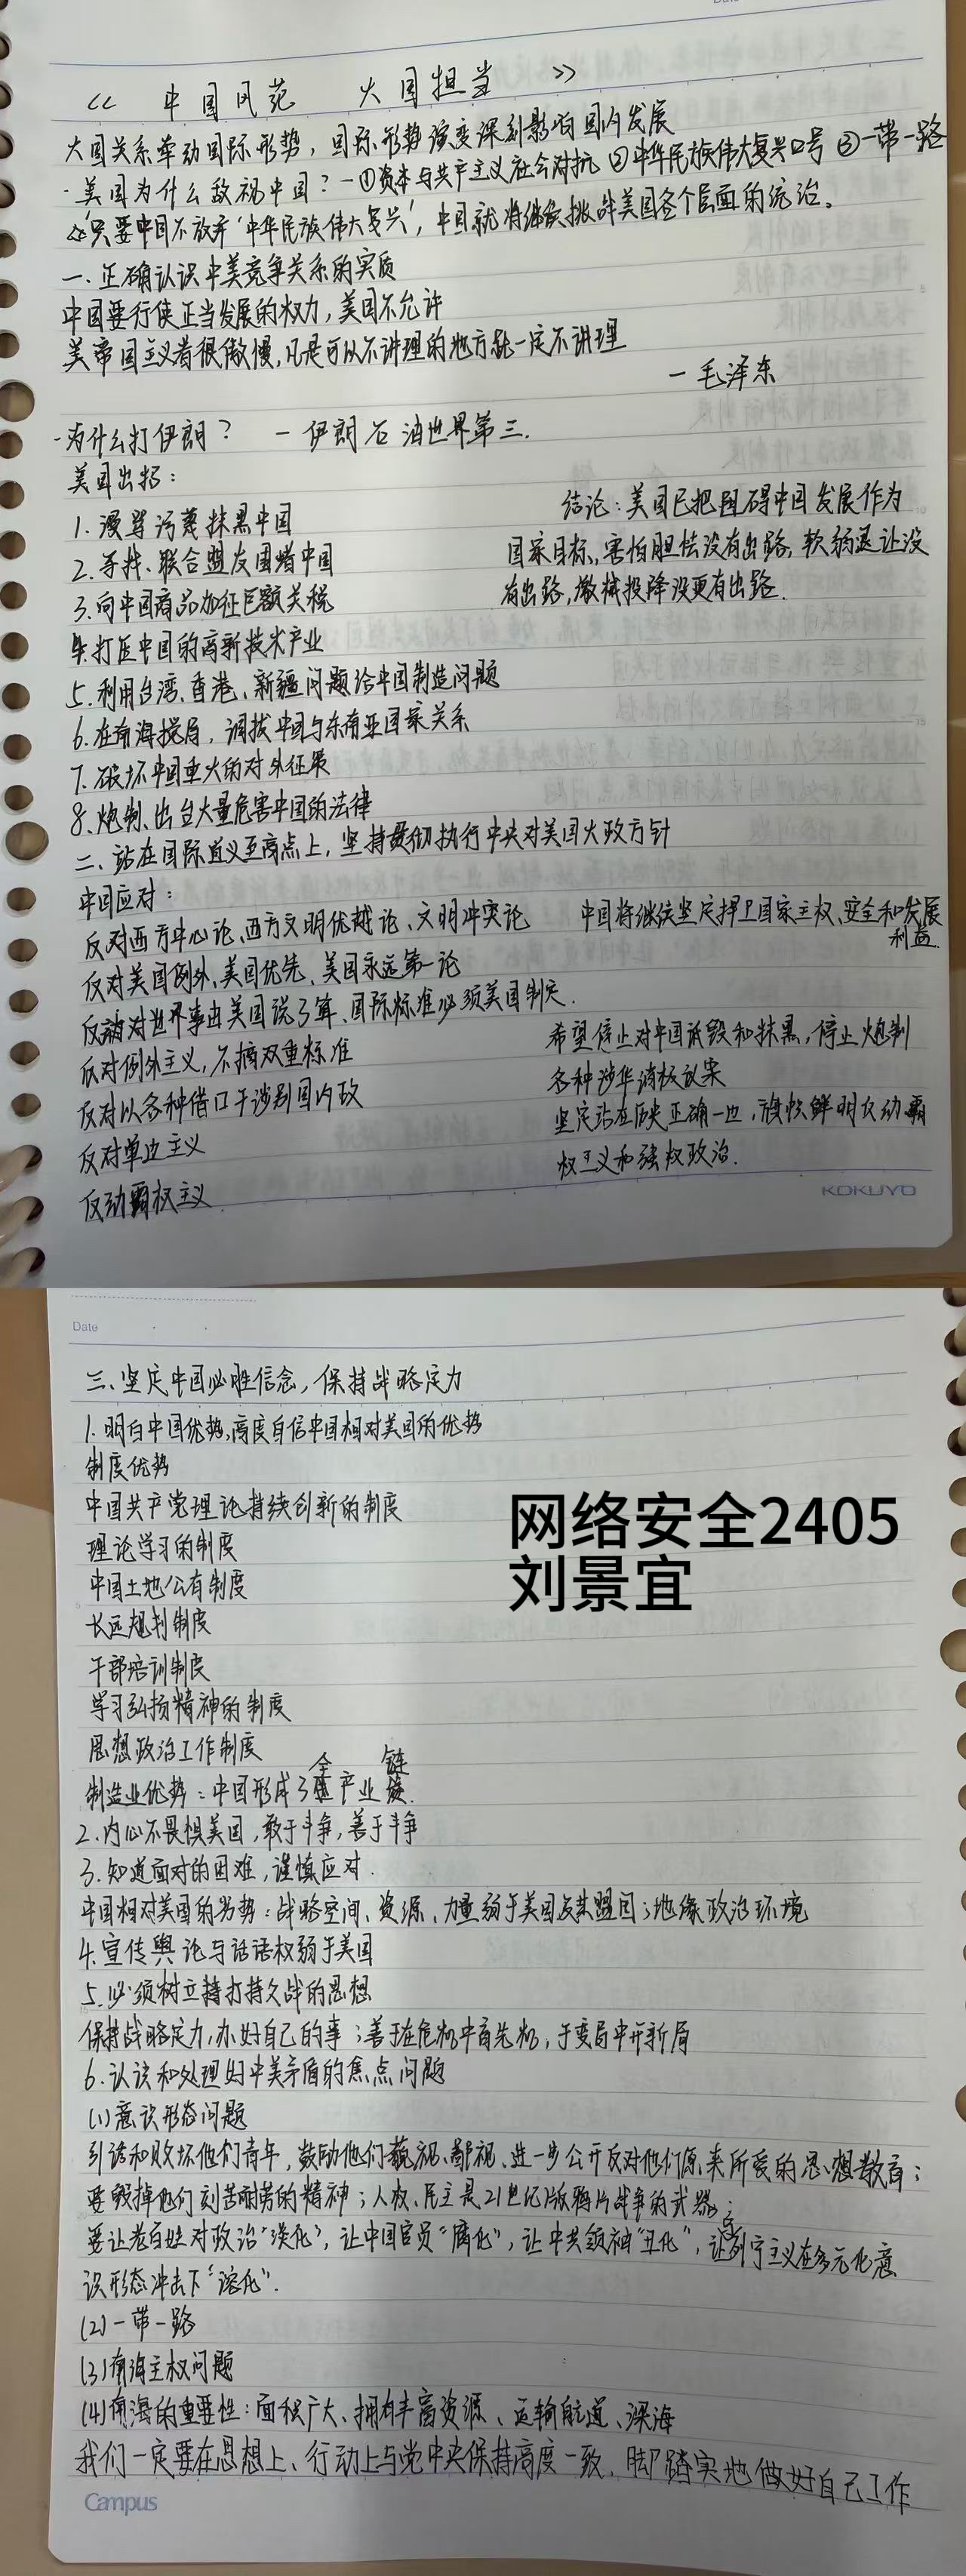 《 中国风范 大国担当 》
大国关系牵动国际形势，国际形势演变深刻影响国内发展
·美国为什么敌视中国？—①资本与共产主义社会对抗 ②中华民族伟大复兴口号 ③一带一路
“只要中国不放弃‘中华民族伟大复兴’，中国就将继续挑战美国各个层面的统治。
一.正确认识中美竞争关系的实质
中国要行使正当发展的权力，美国不允许
美帝国主义者很傲慢，凡是可以不讲理的地方就一定不讲理
—毛泽东
-为什么打伊朗？ —伊朗石油世界第三.
美国出招：
1.漫骂污蔑抹黑中国
2.寻找、联合盟友围堵中国
3.向中国商品加征巨额关税
4.打压中国的高新技术产业
5.利用台湾、香港、新疆问题给中国制造问题
6.在南海搅局，调拨中国与东南亚国家关系
7.破坏中国重大的对外征策
8.炮制、出台大量危害中国的法律
结论：美国已把阻碍中国发展作为
国家目标，害怕胆怯没有出路，软弱退让没
有出路，缴械投降没更有出路.
二、站在国际道义至高点上，坚持贯彻执行中央对美国大政方针
中国应对：
反对西方中心论、西方文明优越论、文明冲突论
反对美国例外、美国优先、美国永远第一论
反对世界事由美国说了算、国际标准必须美国制定.
反对例外主义，不搞双重标准
反对以各种借口干涉别国内政
反对单边主义
反动霸权主义
中国将继续坚定捍卫国家主权、安全和发展
利益.
希望停止对中国诋毁和抹黑，停止炮制
各种涉华消极议案
坚定站在历史正确一边，旗帜鲜明反动霸
权主义和强权政治.
KOKUYO
Date
三、坚定中国必胜信念，保持战略定力
1.明白中国优势，高度自信中国相对美国的优势
制度优势
中国共产党理论持续创新的制度
理论学习的制度
中国土地公有制度
长远规划制度
干部培训制度
学习弘扬精神的制度
思想政治工作制度
制造业优势：中国形成了全产业链.
2.内心不畏惧美国，敢于斗争，善于斗争
3.知道面对的困难，谨慎应对.
中国相对美国的劣势：战略空间、资源、力量弱于美国及其盟国；地缘政治环境
4.宣传舆论与话语权弱于美国
5.必须树立持打持久战的思想
保持战略定力，办好自己的事；善于在危机中育先机，于变局中开新局
6.认识和处理好中美矛盾的焦点问题
(1)意识形态问题
引诱和败坏他们青年，鼓励他们藐视、鄙视、进一步公开反对他们原来所爱的思想教育；
要毁掉他们刻苦耐劳的精神；人权、民主是21世纪版鸦片战争的武器；
要让老百姓对政治“淡化”，让中国官员“腐化”，让中共领袖“丑化”，让列宁主义在多元化意
识形态冲击下“溶化”.
(2)一带一路
(3)南海主权问题
(4)南海的重要性：面积广大、拥有丰富资源、运输航道、深海
我们一定要在思想上、行动上与党中央保持高度一致，脚踏实地做好自己工作
Campus
网络安全2405
刘景宜